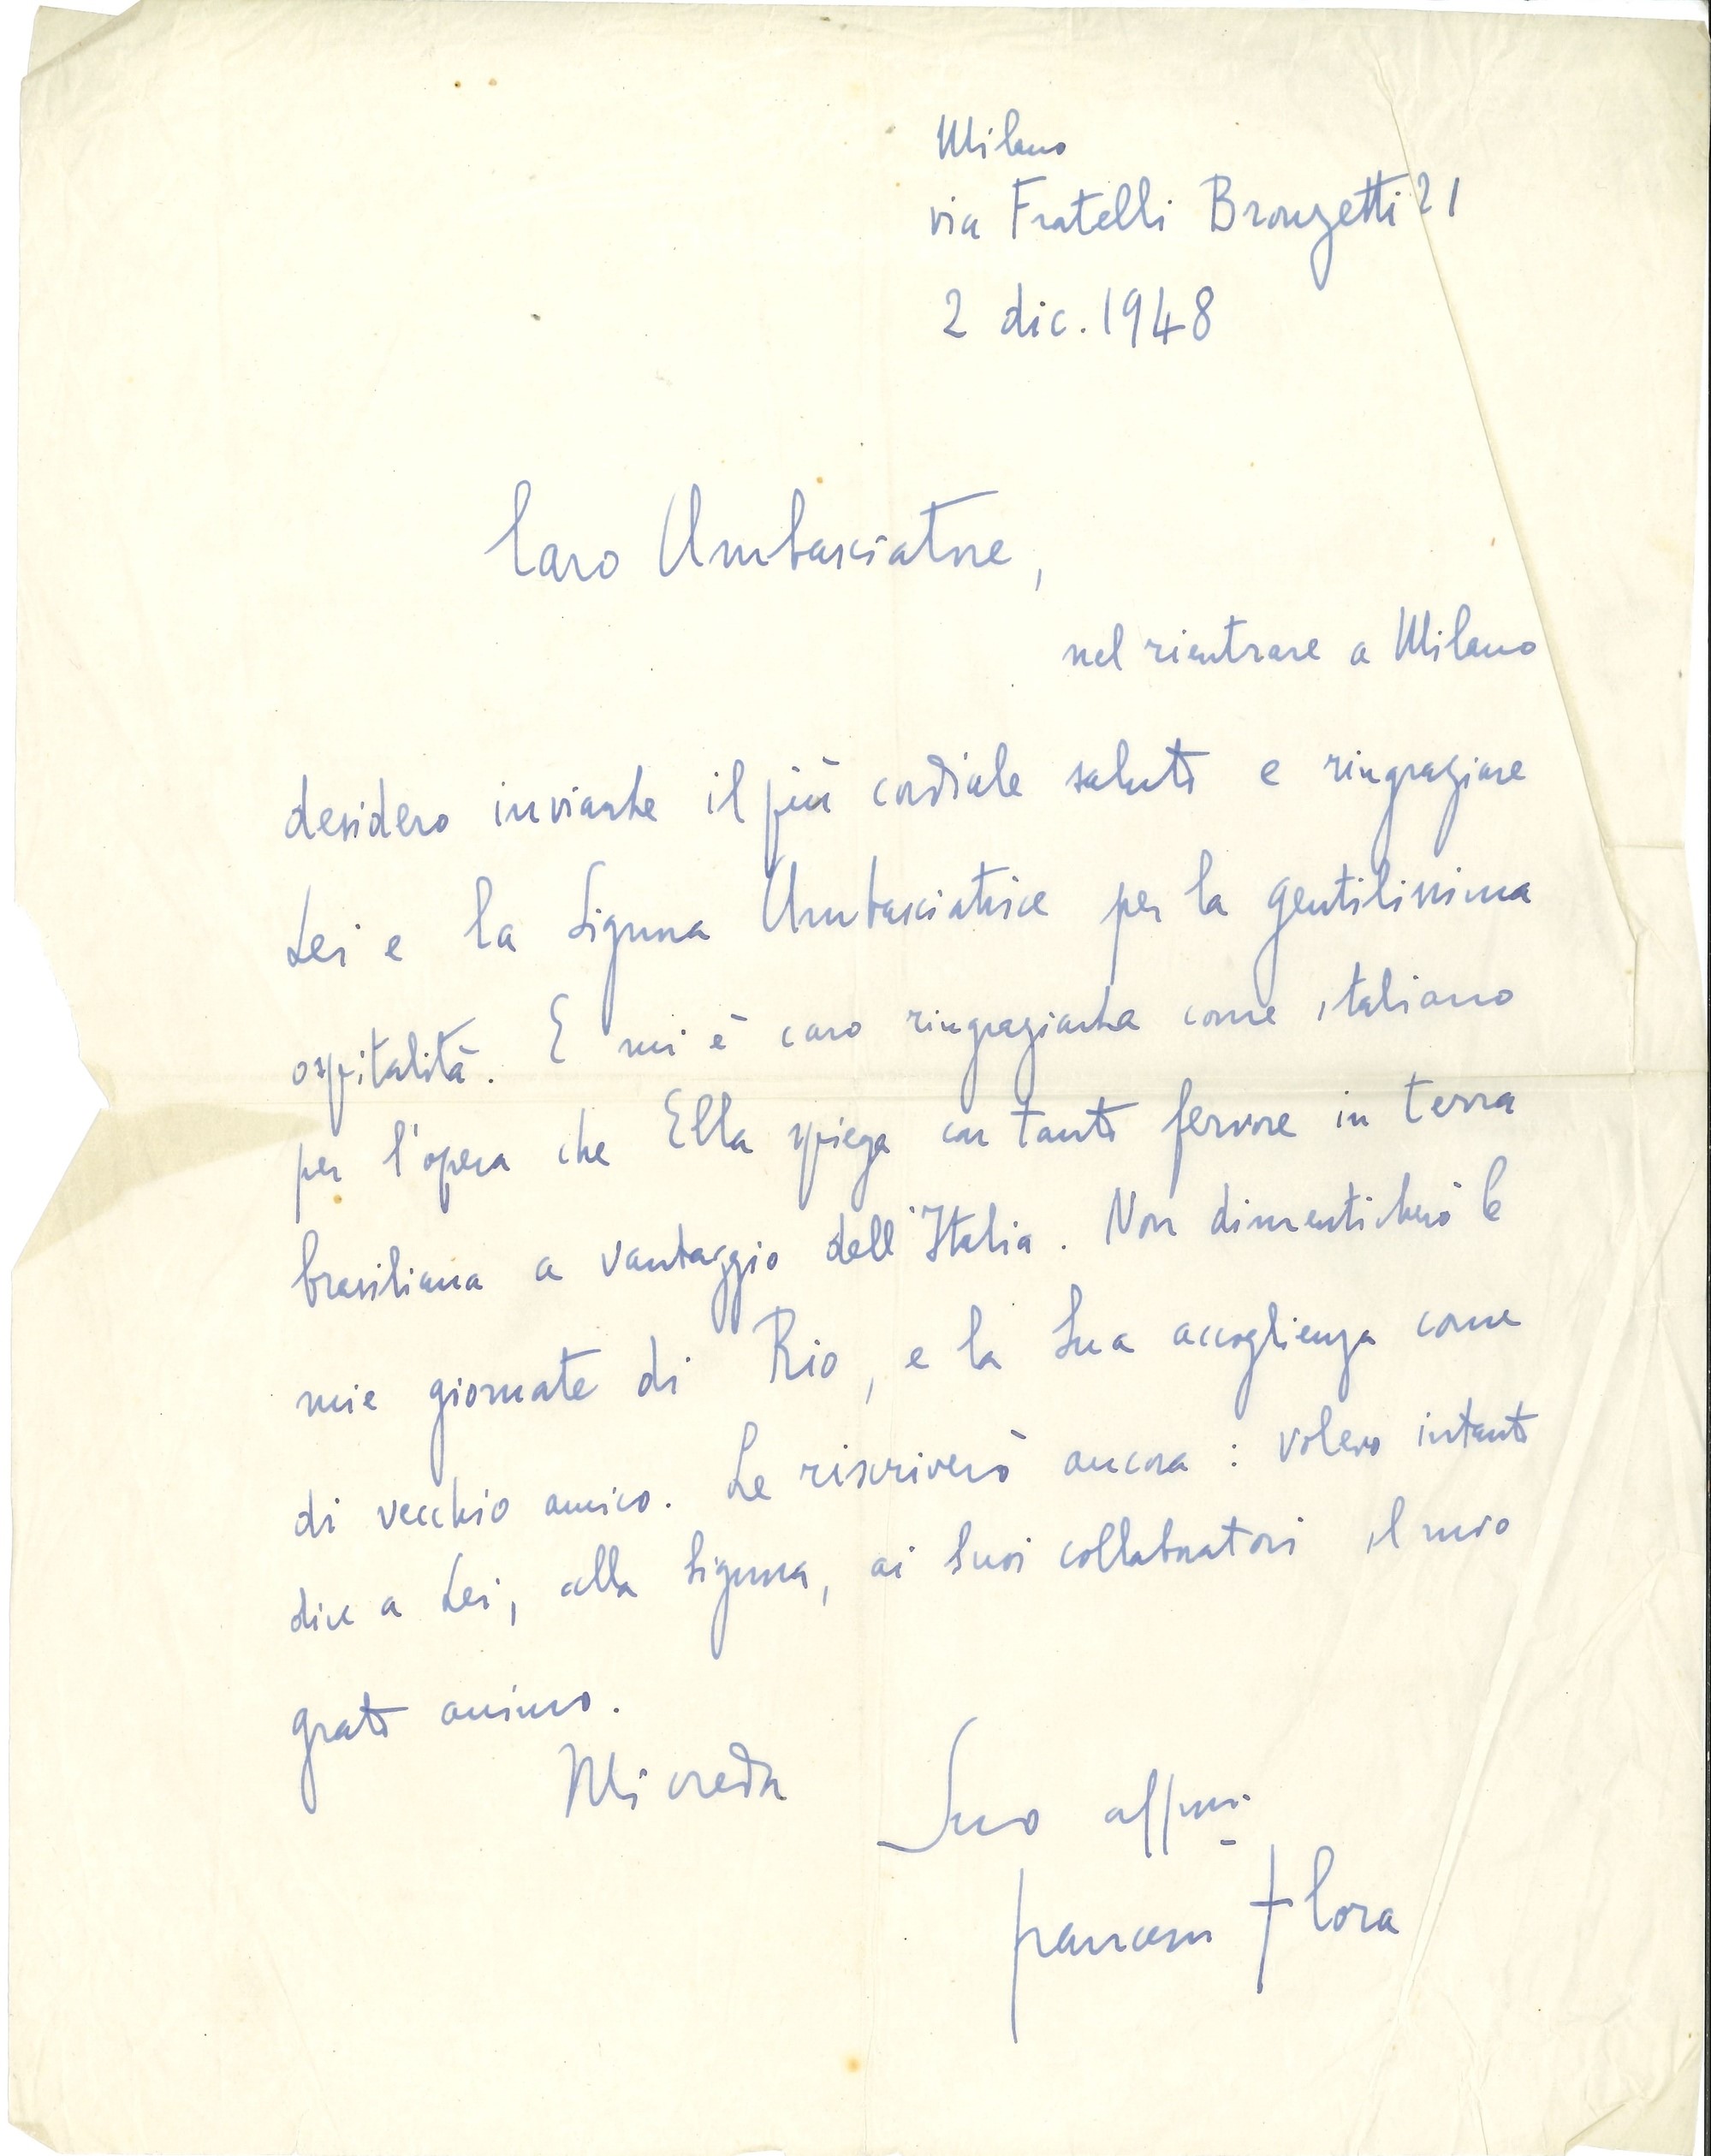 Milano
via Fratelli Bronzetti 21
2 dic. 1948
Caro Ambasciatore,
nel rientrare a Milano
desidero inviarLe il più cordiale saluto e ringraziare
Lei e la Signora Ambasciatrice per la gentilissima
ospitalità. E mi è caro ringraziarLa come italiano
per l'opera che Ella spiega con tanto fervore in terra
brasiliana a vantaggio dell'Italia. Non dimenticherò le
mie giornate di Rio, e la Sua accoglienza come
di vecchio amico. Le riscriverò ancora: volevo intanto
dire a Lei, alla Signora, ai Suoi collaboratori il mio
grato animo.
Mi creda
Suo affmo.
Francesco Flora